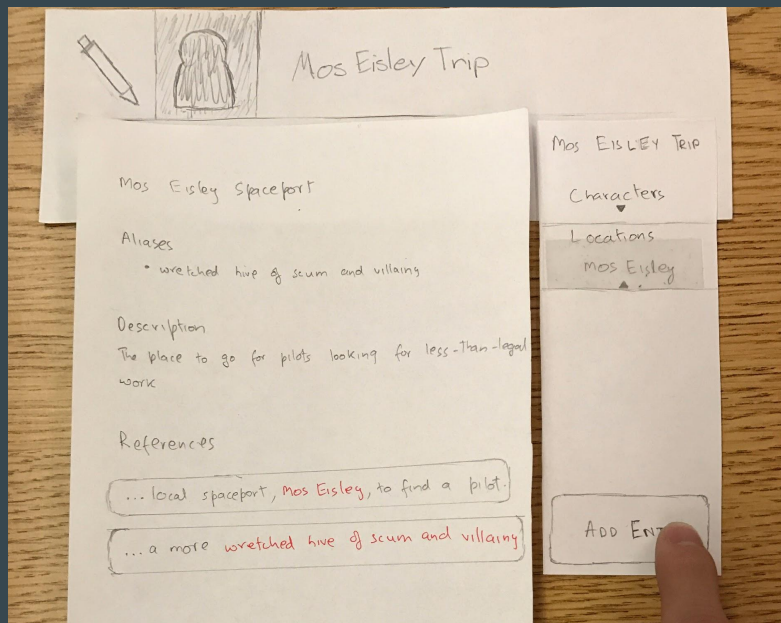 Mos Eisley Trip
Mos Eisley Spaceport
Aliases
• wretched hive of scum and villainy
Description
The place to go for pilots looking for less-than-legal
work
References
...local spaceport, Mos Eisley, to find a pilot.
...a more wretched hive of scum and villainy
MOS EISLEY TRIP
Characters
Locations
Mos Eisley
ADD